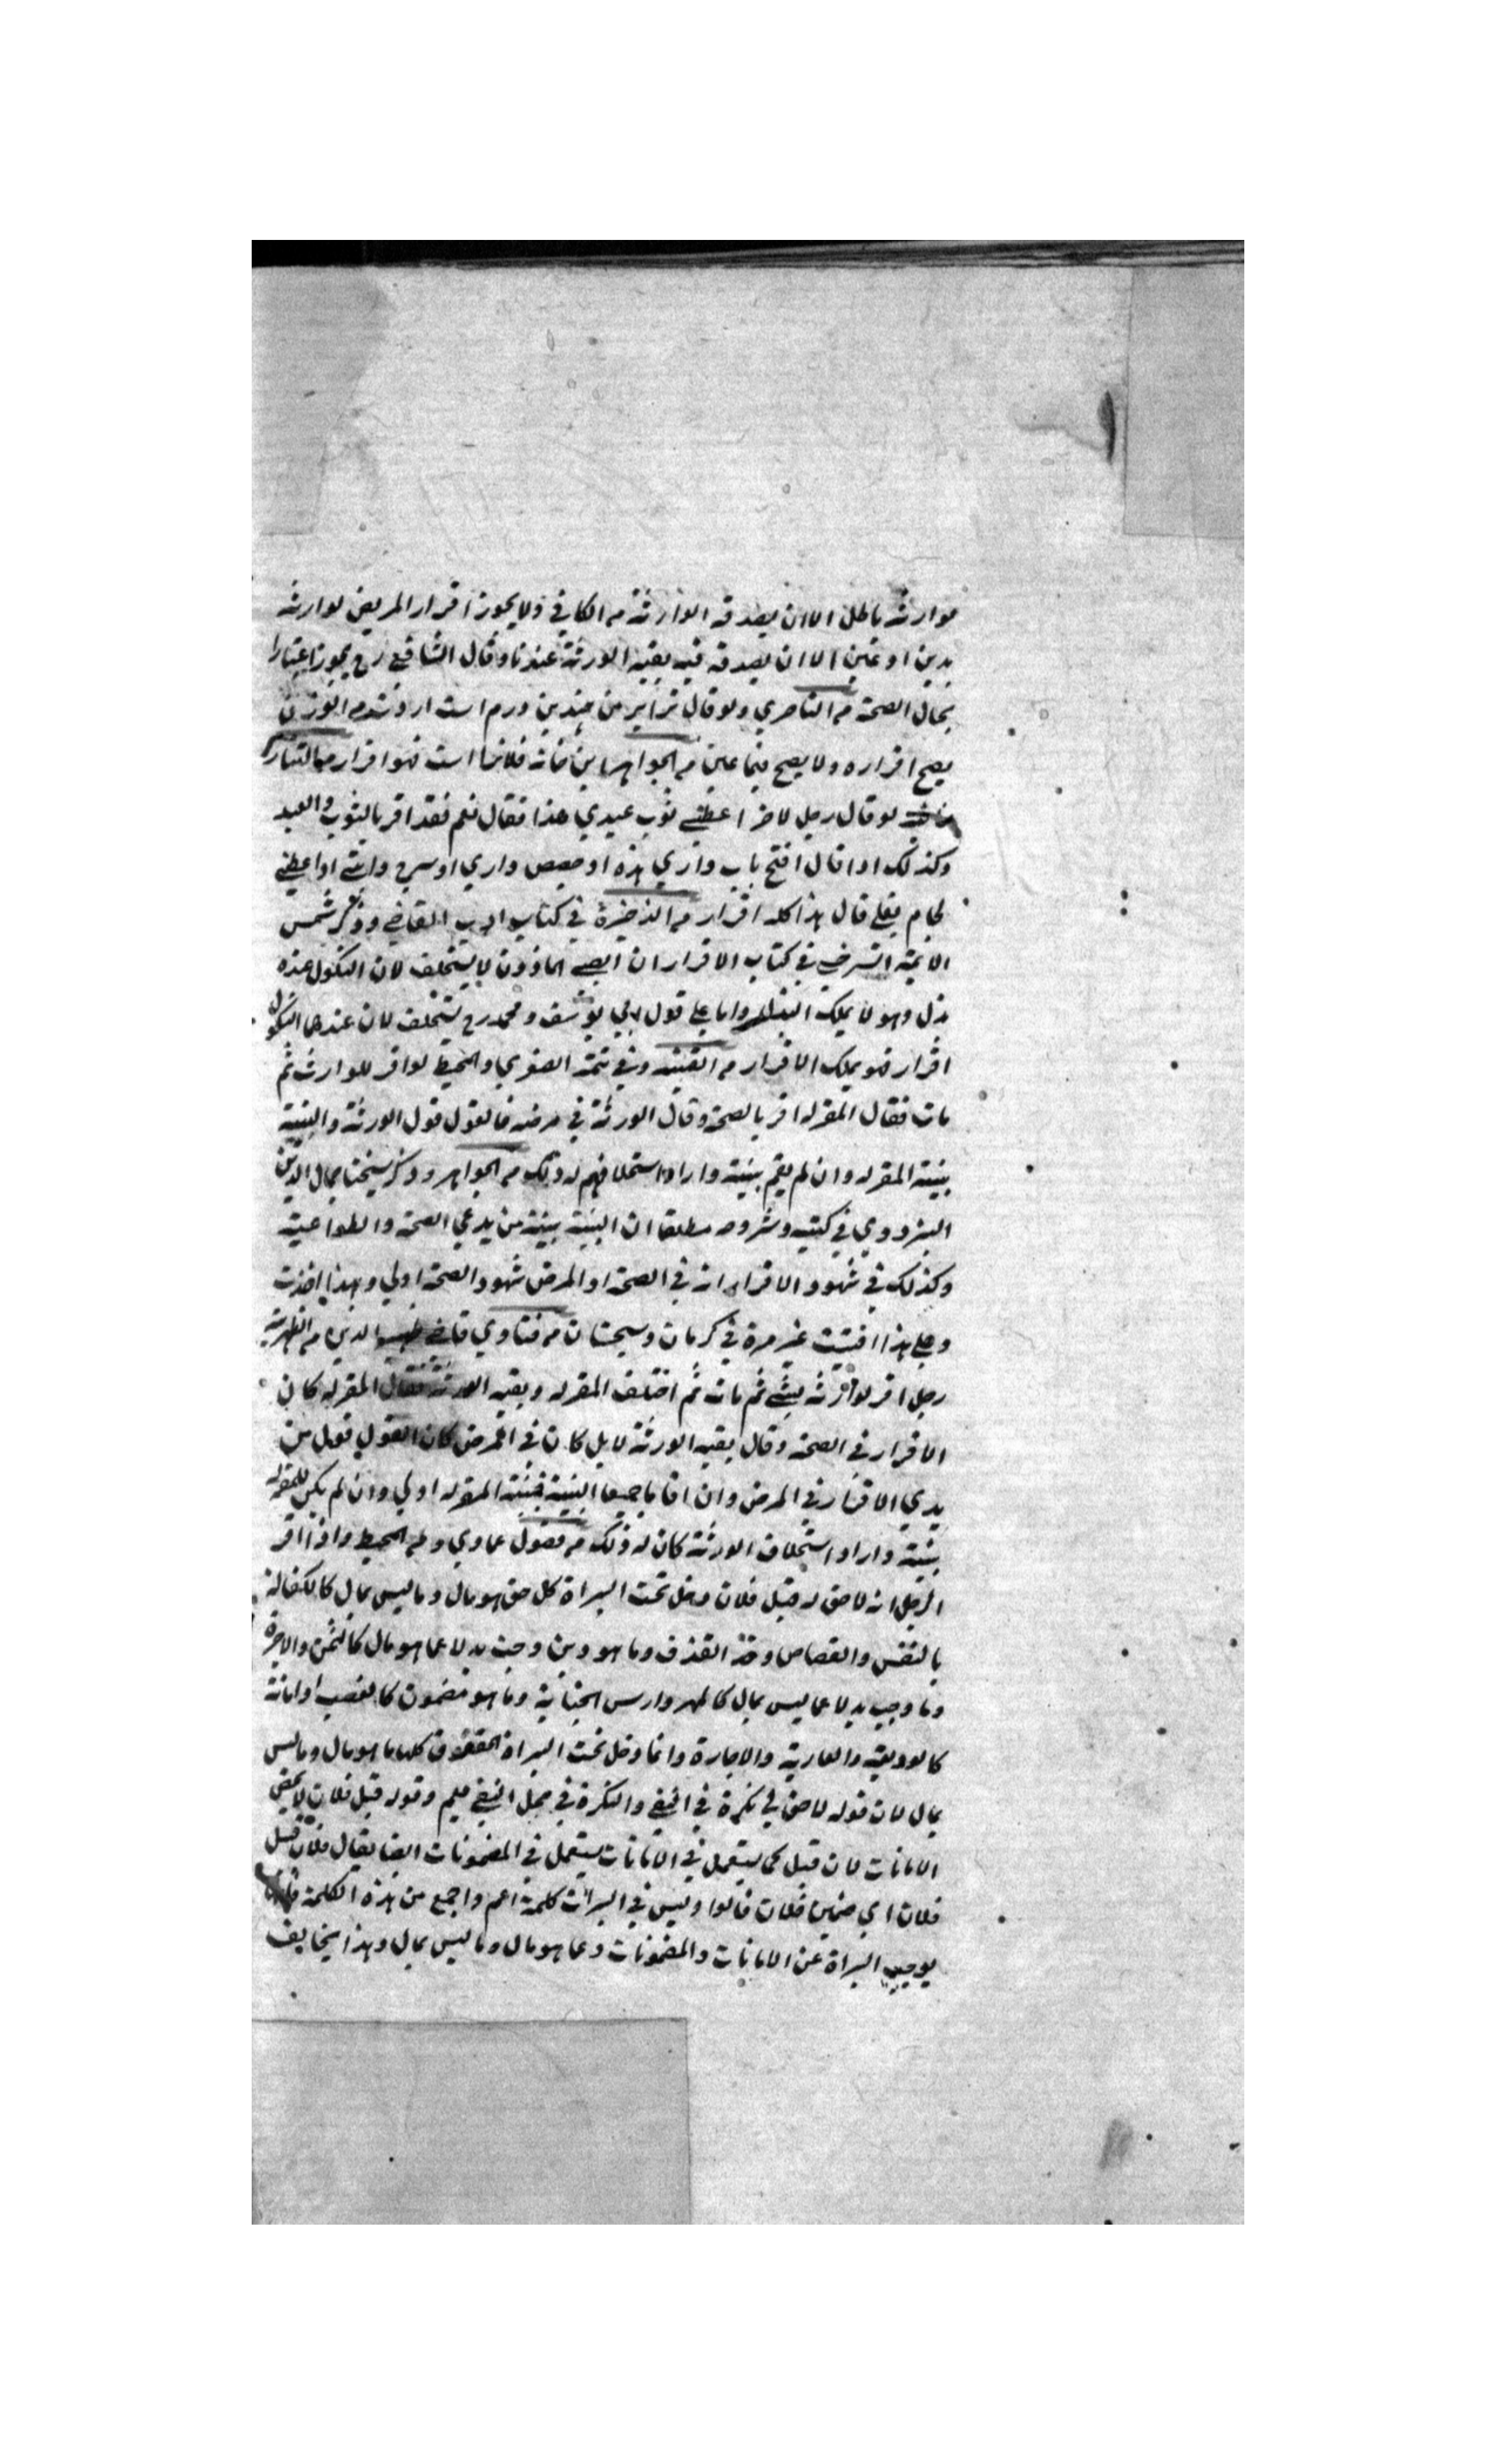 لوارثه باطل الا ان يصدقه الوارثة من الكافي ولا يجوز اقرار المريض لوارثه
بدين او عين الا ان يصدقه فيه بقية الورثة عندنا وقال الشافعي رح يجوز اعتبارا
بحال الصحة من الناصري ولو قال ترا بر من چندين درم است
يصح اقراره ولا يصح من الجواهر اين خانه فلانرا است فهو اقرار
لو قال رجل لاخر اعطني ثوب عبدي هذا فقال نعم فقد اقر بالثوب والعبد
وكذلك اذا قال افتح باب داري هذه او جصص داري او اسرج دابتي او اعطني
لجام بغلي قال هذا كله اقرار من الذخيرة في كتاب ادب القاضي وذكر شمس
الائمة السرخسي في كتاب الاقرار ان الصبي الماذون لا يستحلف لان النكول عنده
بذل وهو لا يملك البذل واما علي قول ابي يوسف ومحمد رح يستحلف لان عندهما النكول
اقرار فهو يملك الاقرار من القنية وفي تتمة الصغري والمحيط لو اقر للوارث ثم
مات فقال المقر له اقر بالصحة وقال الورثة في مرضه فالقول قول الورثة والبينة
بينة المقر له وان لم يقم بينة واراد استحلافهم له ذلك من الجواهر وذكر شيخنا جمال الدين
البزدوي في كتبه وشروطه مطلقا ان البينة بينة من يدعي الصحة والطواعية
وكذلك في شهود الاقرار انه في الصحة او المرض شهود الصحة اولي وبهذا اخذت
وعلي هذا افتيت غير مرة في كرمان وسجستان من فتاوي قاضي ظهير الدين من الظهيرية
رجل اقر لوارثه بشئ ثم مات ثم اختلف المقر له وبقية الورثة فقال المقر له كان
الاقرار في الصحة وقال بقية الورثة لا بل كان في المرض كان القول قول من
يدعي الاقرار في المرض وان اقاما جميعا البينة فبينة المقر له اولي وان لم يكن للمقر له
بينة واراد استحلاف الورثة كان له ذلك من فصول عمادي وفي المحيط واذا اقر
الرجل انه لا حق له قبل فلان دخل تحت البراة كل حق هو مال وما ليس بمال كالكفالة
بالنفس والقصاص وحد القذف وما هو دين وجب بدلا عما هو مال كالثمن والاجرة
وما وجب بدلا عما ليس بمال كالمهر وارش الجناية وما هو مضمون كالغصب او امانة
كالوديعة والعارية والاجارة وانما دخل تحت البراة الحقوق كلها ما هو مال وما ليس
بمال لان قوله لا حق لي نكرة في النفي والنكرة في محل النفي تعم وقوله قبل فلان لا يخص
الامانات لان قبل كما يستعمل في الامانات يستعمل في المضمونات ايضا يقال فلان قبيل
فلان اي ضمين فلان قالوا وليس في البراات كلمة اعم واجمع من هذه الكلمة فانها
يوجب البراة عن الامانات والمضمونات وعما هو مال وما ليس بمال وهذا بخلاف